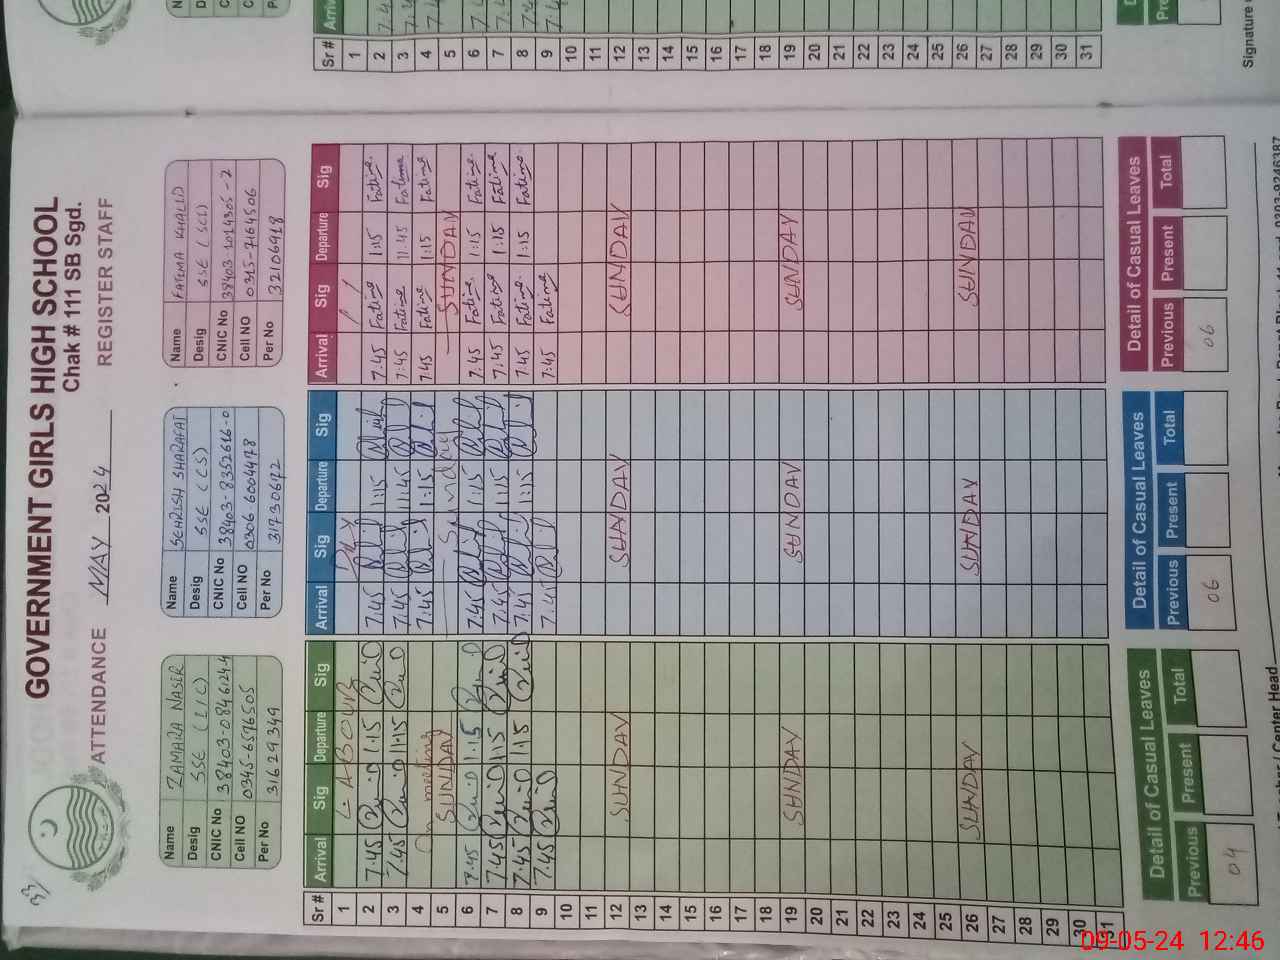 33/
GOVERNMENT GIRLS HIGH SCHOOL
Chak # 111 SB Sgd.
ATTENDANCE MAY 2024 REGISTER STAFF
Name ZAMARA NASER
Desig SSE (LIC)
CNIC No 38403-0846124-4
Cell NO 0345-6576505
Per No 31629349
Name SEHRISH SHARAFAT
Desig SSE (CS)
CNIC No 38403-8352616-0
Cell NO 0306-6004478
Per No 31730672
Name FATEMA KHALID
Desig SSE (SCI)
CNIC No 38403-1014305-2
Cell NO 0315-7164506
Per No 32106918
Sr # Arrival Sig Departure Sig Arrival Sig Departure Sig Arrival Sig Departure Sig
1 LABOUR DAY
2 7.45 1.15 7.45 1:15 7.45 Fatima 1:15 Fatima
3 7.45 11.15 7.45 11:45 7:45 Fatima 11:45 Fatima
4 On meeting 7:45 1:15 7:45 Fatima 1:15 Fatima
5 SUNDAY Sunday SUNDAY
6 7.45 1.15 7.45 1:15 7.45 Fatima 1:15 Fatima
7 7.45 1.15 7.45 1:15 7.45 Fatima 1:15 Fatima
8 7.45 1.15 7.45 1:15 7.45 Fatima 1:15 Fatima
9 7.45 7.45 7:45 Fatima
10
11
12 SUNDAY SUNDAY SUNDAY
13
14
15
16
17
18
19 SUNDAY SUNDAY SUNDAY
20
21
22
23
24
25
26 SUNDAY SUNDAY SUNDAY
27
28
29
30
31
Detail of Casual Leaves Detail of Casual Leaves Detail of Casual Leaves
Previous Present Total Previous Present Total Previous Present Total
04 06 06
Center Head
Sr #
1
2
3
4
5
6
7
8
9
10
11
12
13
14
15
16
17
18
19
20
21
22
23
24
25
26
27
28
29
30
31
Signature
09-05-24 12:46